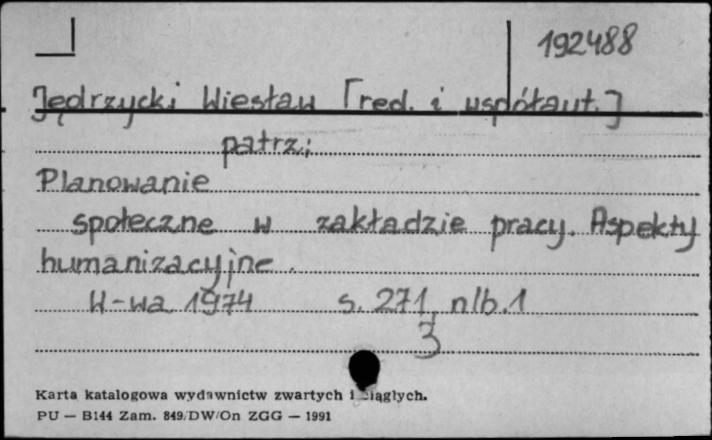 192488
Jędrzycki Wiesław [red. i współaut.]
patrz:
Planowanie
społeczne w zakładzie pracy. Aspekty
humanizacyjne.
W-wa 1974 s. 271, nlb. 1
3
Karta katalogowa wydawnictw zwartych i ciągłych.
PU — B144 Zam. 849/DW/On ZGG — 1991